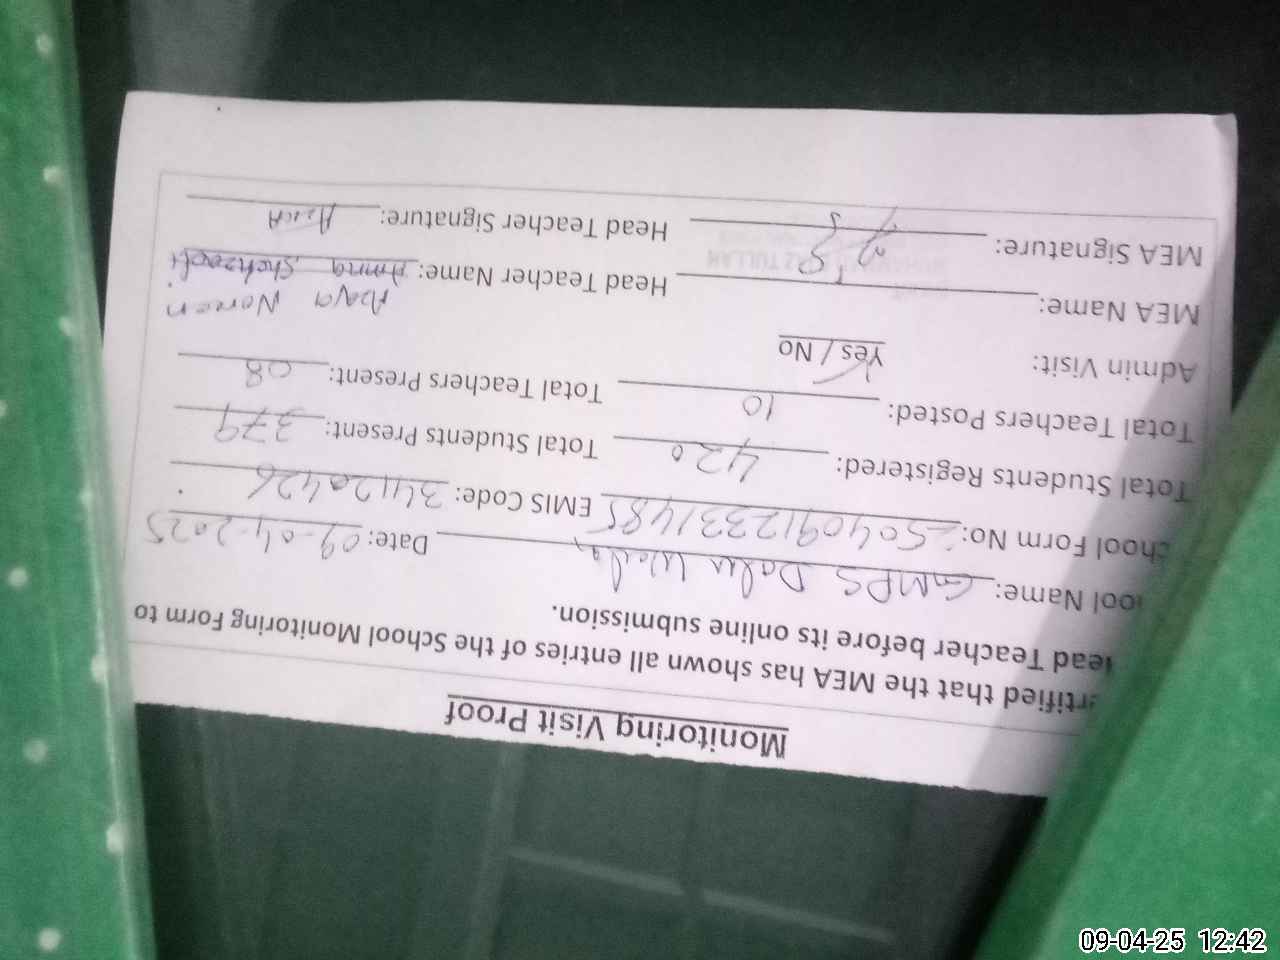 Monitoring Visit Proof
ertified that the MEA has shown all entries of the School Monitoring Form to
Head Teacher before its online submission.
ool Name: GMPS Date: 09-04-2025
chool Form No: 25040912331485 EMIS Code: 34120426
Total Students Registered: 420 Total Students Present: 379
Total Teachers Posted: 10 Total Teachers Present: 08
Admin Visit: Yes / No
Azra Noreen
MEA Name: Head Teacher Name: Amna Shehzadi
MEA Signature: Head Teacher Signature:
09-04-25 12:42